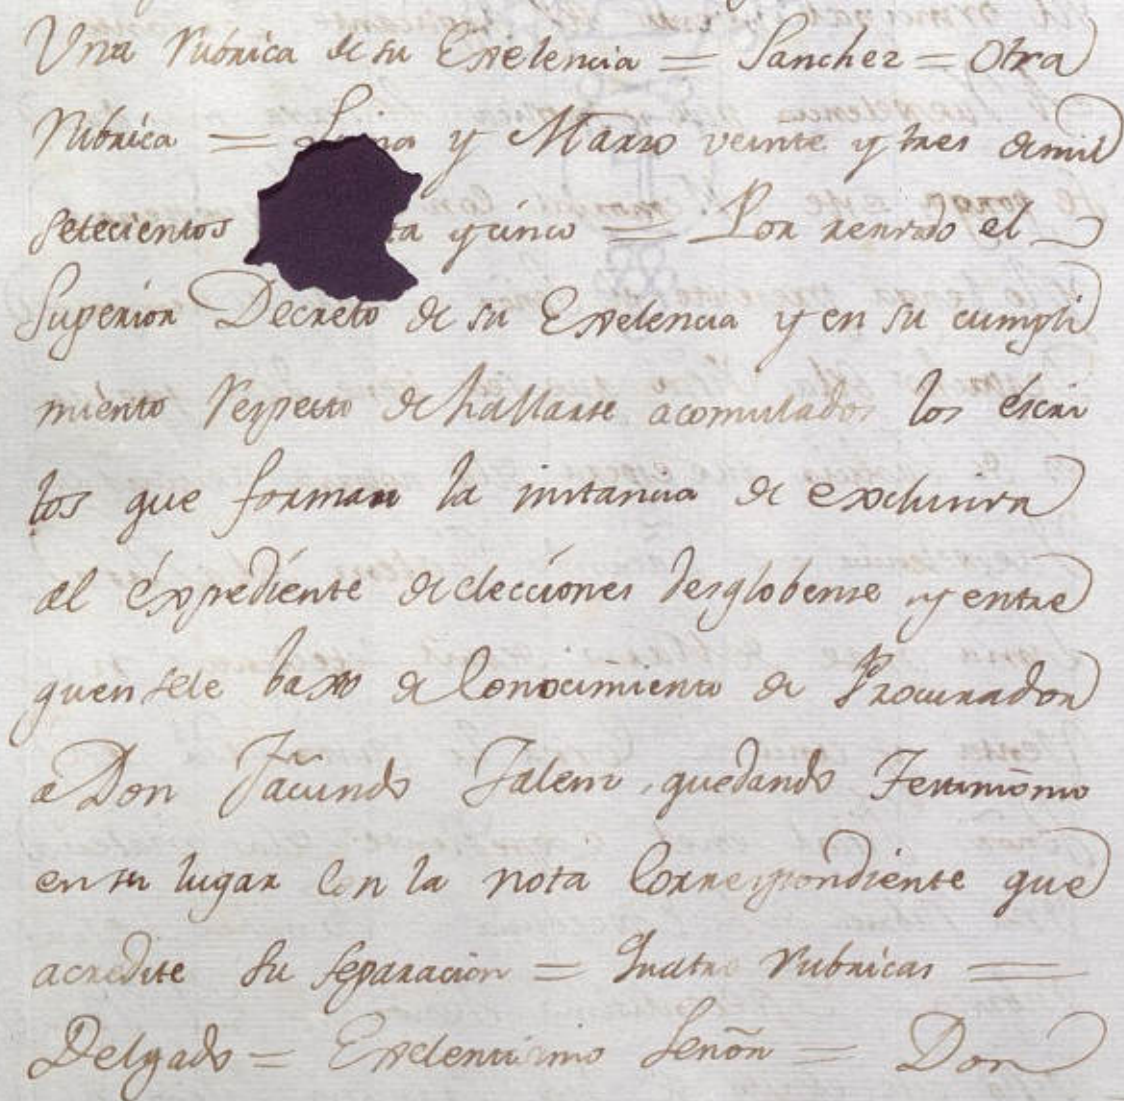 Una Rubrica de su Exelencia = Sanchez = Otra
Rubrica = y Marzo veinte y tres de mil
setecientos ta y cinco = Por recivido el
Superior Decreto de su Exelencia y en su cumpli
miento Respecto de hallarse acomulados los escri
tos que forman la instancia de exclusiva
al éxpediente de elecciones desglobense y entre
guensele baxo de Conocimiento de Procurador
a Don Facundo quedando Testimonio
en su lugar Con la nota Correspondiente que
acredite su separacion = Quatro rubricas =
Delgado = Exelentisimo Señor = Don